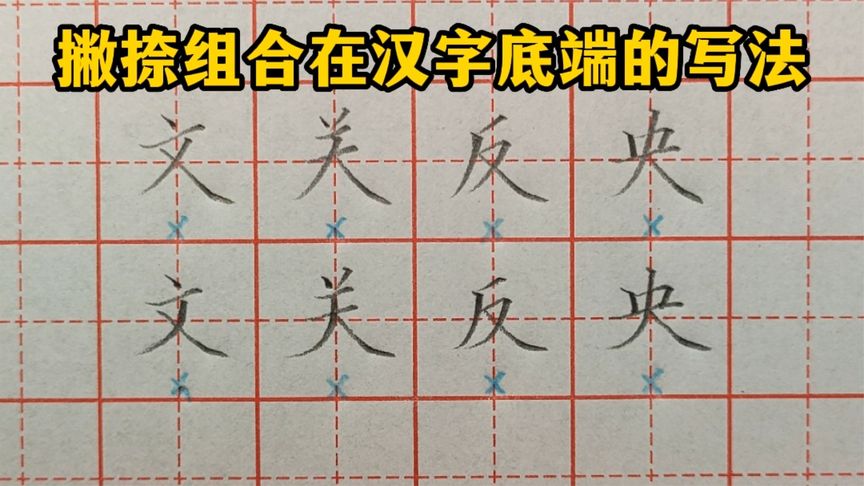 撇捺组合在汉字底端的写法
文 关 反 央
× × × ×
文 关 反 央
× × × ×